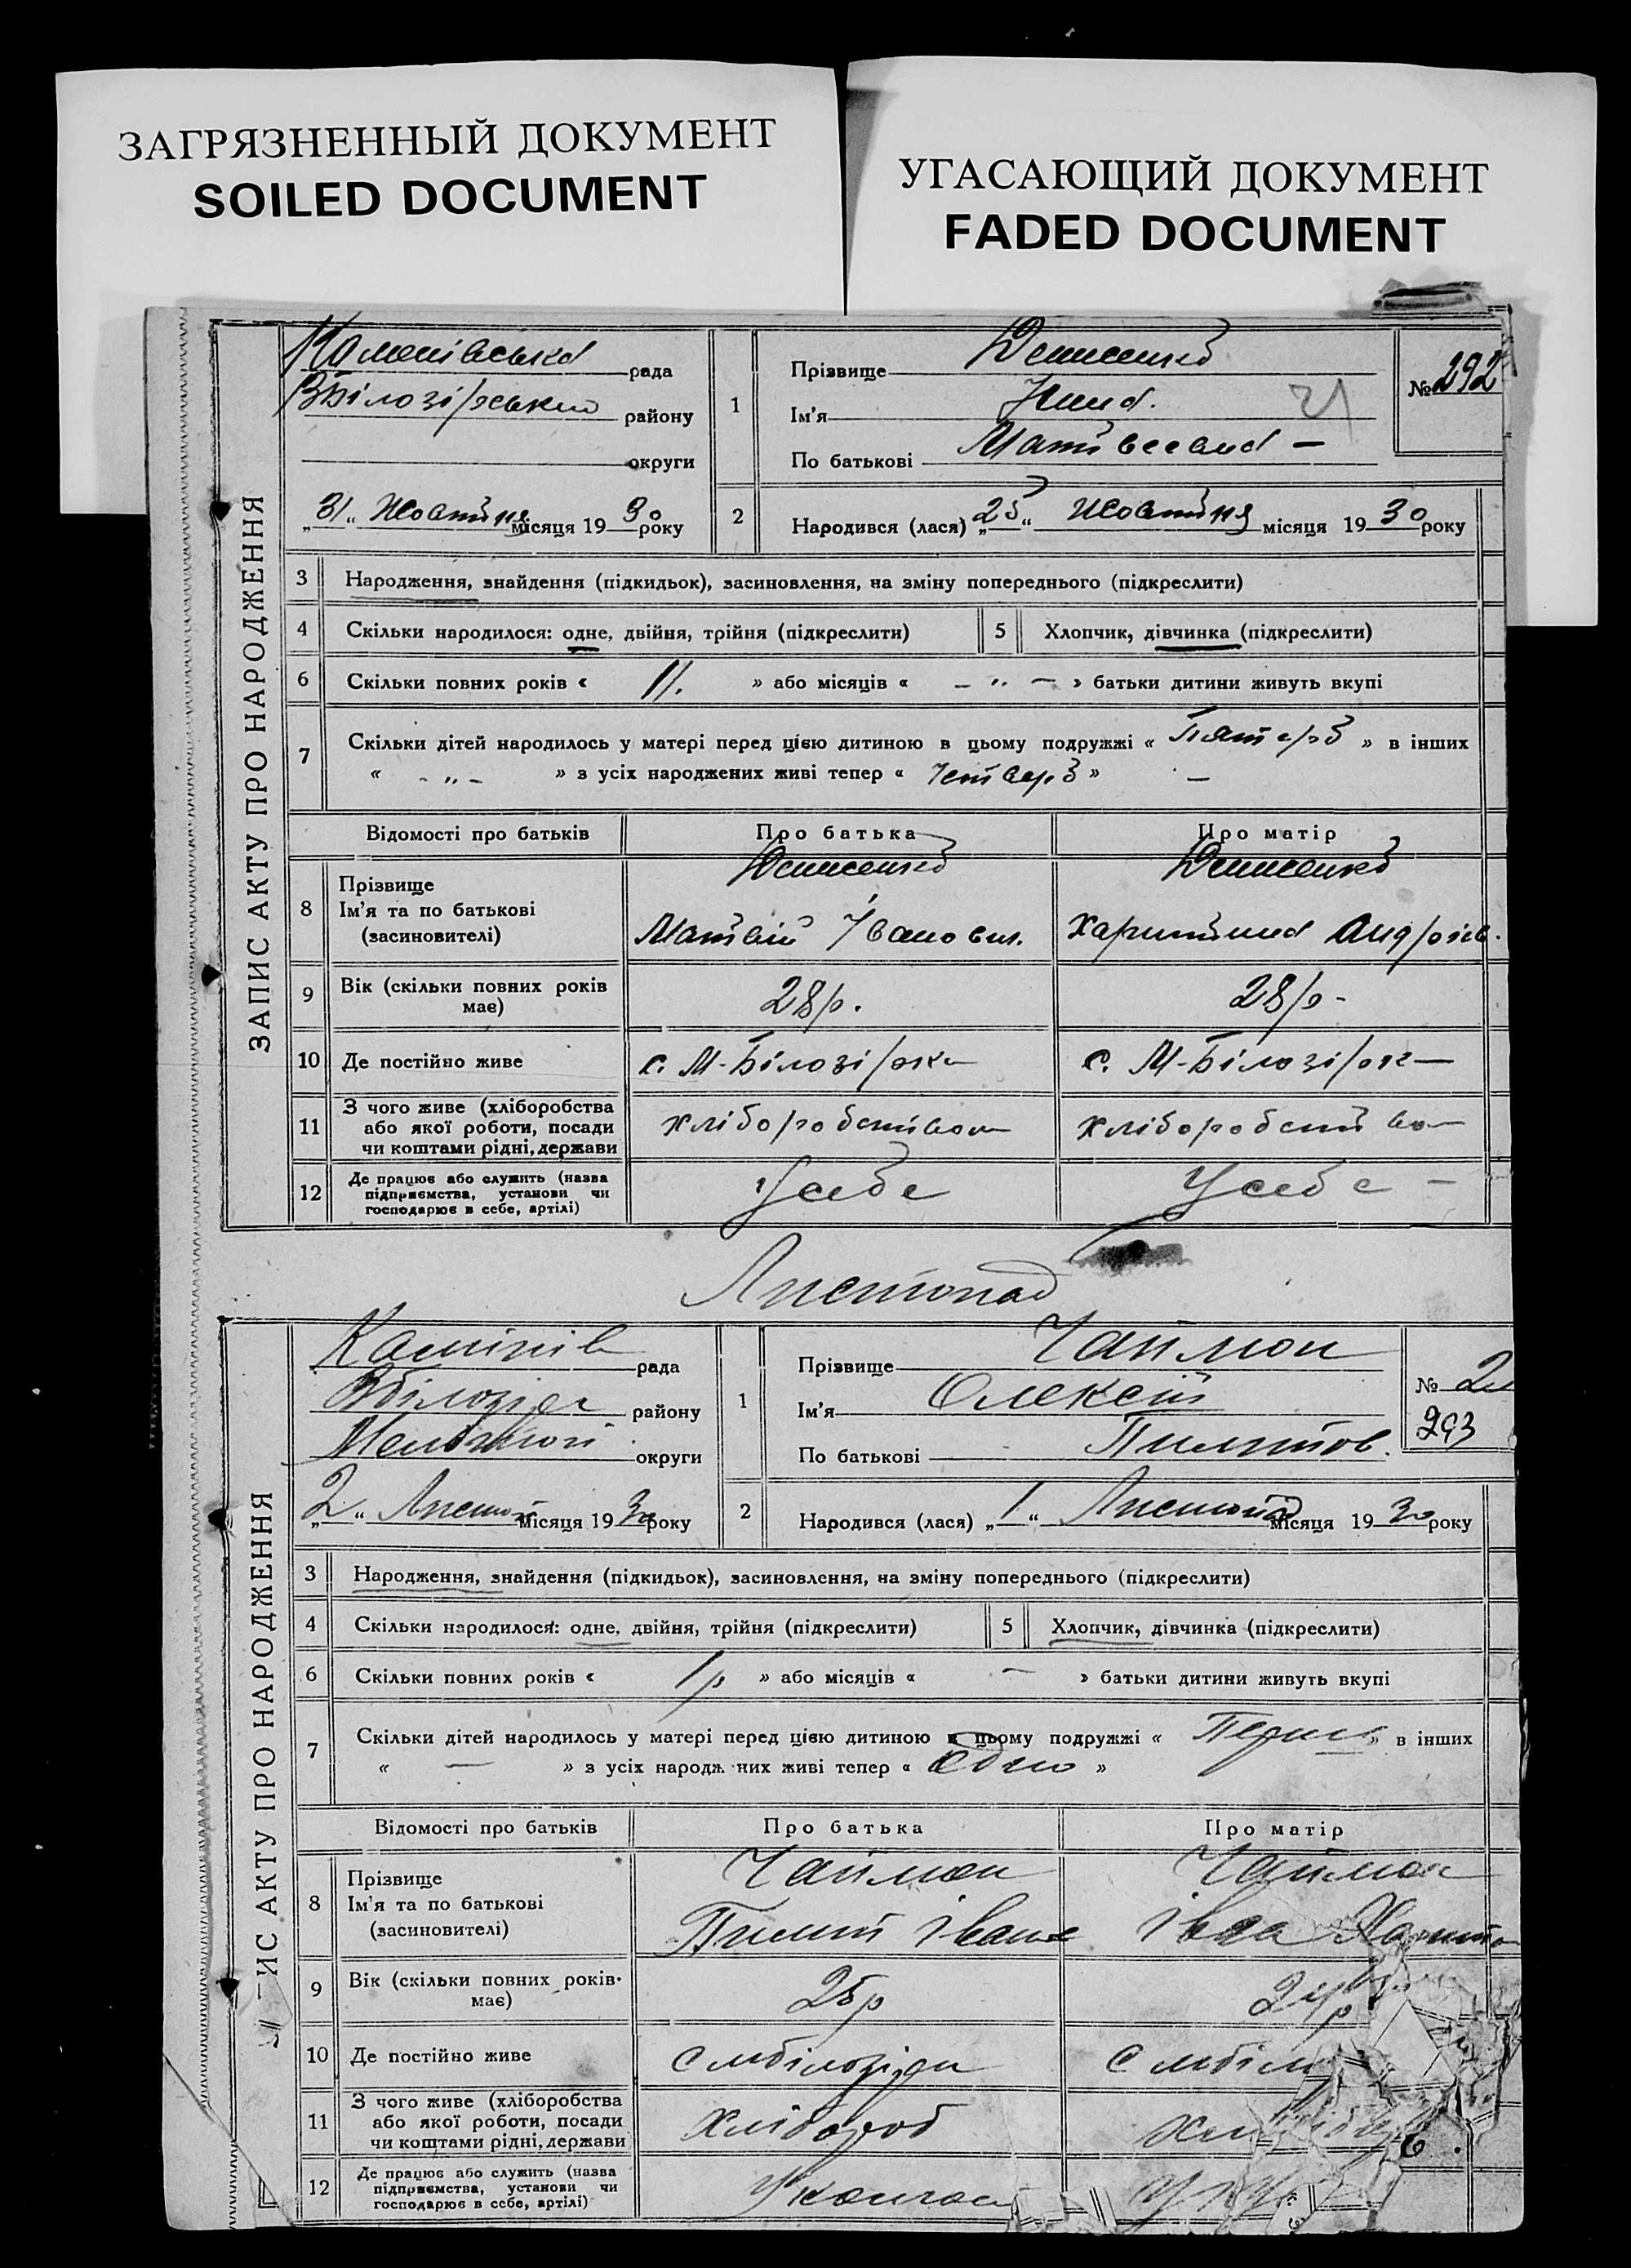 ЗАГРЯЗНЕННЫЙ ДОКУМЕНТ
SOILED DOCUMENT
УГАСАЮЩИЙ ДОКУМЕНТ
FADED DOCUMENT
ЗАПИС АКТУ ПРО НАРОДЖЕННЯ
рада
ВБілозірський району
округи
„31“ Жовтня місяця 1930 року
1
Прізвище Денисенко
Ім’я Нина.
По батькові Матвеевна –
№ 292
21
2
Народився (лася) „25“ Жовтня місяця 1930 року
3 Народження, знайдення (підкидьок), засиновлення, на зміну попереднього (підкреслити)
4 Скільки народилося: одне, двійня, трійня (підкреслити)
5 Хлопчик, дівчинка (підкреслити)
6 Скільки повних років « 11. » або місяців « – „ – » батьки дитини живуть вкупі
7 Скільки дітей народилось у матері перед цією дитиною в цьому подружжі « Пятеро » в інших
« - „ - » з усіх народжених живі тепер « Четверо » –
Відомості про батьків Про батька Про матір
8 Прізвище Ім’я та по батькові (засиновителі)
Денисенко Денисенко
Матвій Іванович. Харитина Андріів.
9 Вік (скільки повних років має) 28 р. 28 р-
10 Де постійно живе с. М-Білозірка с. М-Білозірк
11 З чого живе (хліборобства або якої роботи, посади чи коштами рідні, держави
хліборобством хліборобство
12 Де працює або служить (назва підприємства, установи чи господарює в себе, артілі)
Усебе Усебе –
Листопад
ИС АКТУ ПРО НАРОДЖЕННЯ
рада
Вбілозірк району
Мелітоп округи
„2“ Листоп місяця 1930 року
1
Прізвище Чаймон
Ім’я Олексій
По батькові Пилипов.
№ 2
293
2
Народився (лася) „1“ Листопад місяця 1930 року
3 Народження, знайдення (підкидьок), засиновлення, на зміну попереднього (підкреслити)
4 Скільки народилося: одне, двійня, трійня (підкреслити)
5 Хлопчик, дівчинка (підкреслити)
6 Скільки повних років « 1р » або місяців « – » батьки дитини живуть вкупі
7 Скільки дітей народилось у матері перед цією дитиною в цьому подружжі « Перш » в інших
« — » з усіх народж них живі тепер « одно »
Відомості про батьків Про батька Про матір
8 Прізвище Ім’я та по батькові (засиновителі)
Чаймон Чаймон
Пилип Іване Харит
9 Вік (скільки повних років має) 25р 24р
10 Де постійно живе с мбілозірки с мбіл
11 З чого живе (хліборобства або якої роботи, посади чи коштами рідні, держави
Хлібороб
12 Де працює або служить (назва підприємства, установи чи господарює в себе, артілі)